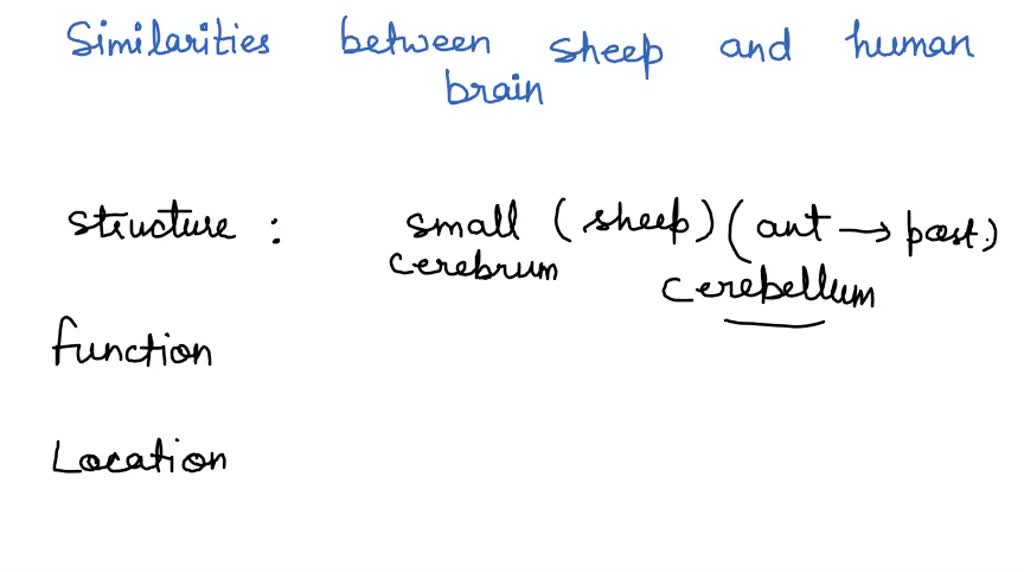 Similarities between sheep and human
brain
structure : small (sheep) (ant → post.)
cerebrum cerebellum
function
Location